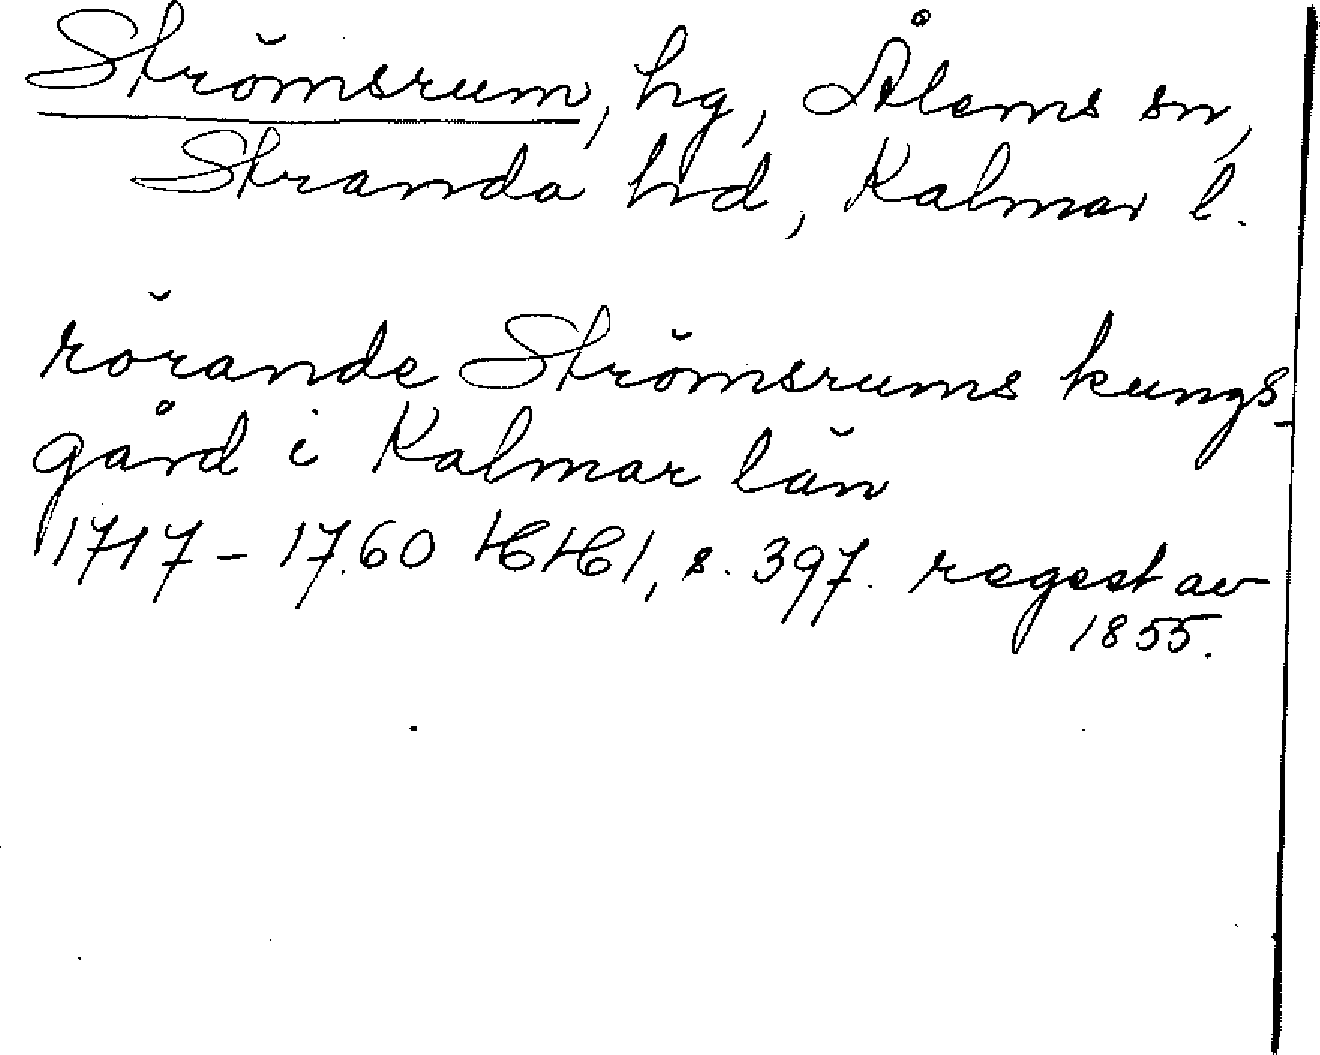 Strömsrum, hg, Ålems sn,
Stranda hd, Kalmar l.
rörande Strömsrums kungs-
gård i Kalmar län
1717 - 1760 HH1, s. 397. regest av
1855.